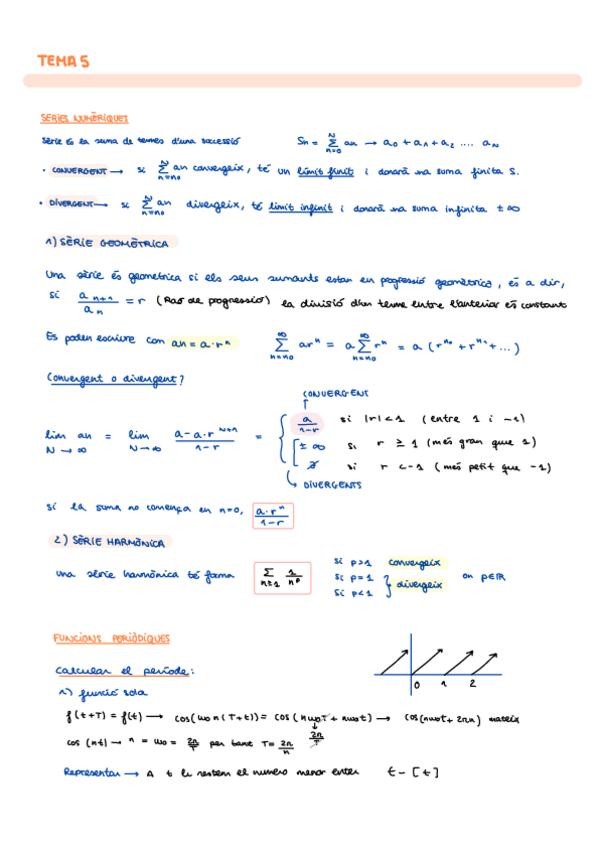 TEMA 5
SÈRIES NUMÈRIQUES
Sèrie és la suma de termes d'una successió Sn = N Σ n=0 an → a0 + a1 + a2 .... aN
• CONVERGENT → si N Σ n=n0 an convergeix, té un límit finit i donarà una suma finita S.
• DIVERGENT → si N Σ n=n0 an divergeix, té límit infinit i donarà una suma infinita ± ∞
1) SÈRIE GEOMÈTRICA
Una sèrie és geomètrica si els seus sumants estan en progressió geomètrica, és a dir,
si a n+1 / an = r (Raó de progressió) la divisió d'un terme entre l'anterior és constant
Es poden escriure com an = a · r^n ∞ Σ n=n0 ar^n = a ∞ Σ n=n0 r^n = a (r^n0 + r^n1 + ...)
Convergent o divergent?
CONVERGENT
lim N→∞ an = lim N→∞ a - a·r^N+1 / 1-r = { a / 1-r si |r| < 1 (entre 1 i -1)
± ∞ si r ≥ 1 (més gran que 1)
∄ si r < -1 (més petit que -1)
DIVERGENTS
si la suma no comença en n=0, a·r^n / 1-r
2) SÈRIE HARMÒNICA
una sèrie harmònica té forma Σ n≥1 1 / n^p
si p>1 convergeix
si p=1 } divergeix on p∈ℝ
si p<1
FUNCIONS PERIÒDIQUES
Calcular el període:
0 1 2
1) funció sola
f(t+T) = f(t) → cos(ω0 n (T+t)) = cos (nω0T + nω0t) → cos(nω0t + 2πn) mateix
2π / T
cos (nt) → n = ω0 = 2π / T per tant T = 2π / n
Representar → A t li restem el numero menor enter t - [t]